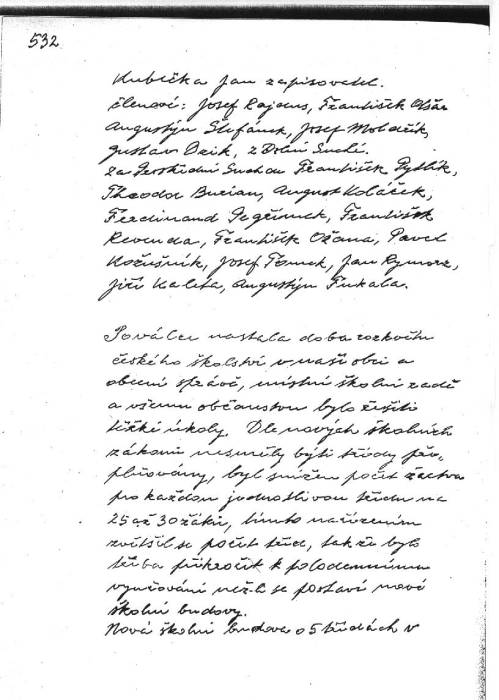 532
Kubička Jan zapisovatel.
Členové: Josef Rajdus, František Olšar
Augustýn Štefánek, Josef Moldřík,
Gustav Dzik, z Dolní Suché.
Za Prostřední Suchou František Pytlík,
Theodor Burian, August Koláček,
Ferdinand Pegřímek, František
Revenda, František Ožana, Pavel
Kožušník, Josef Tomek, Jan Rymorz,
Jiří Kaleta, Augustýn Fukala.
Po válce nastala doba rozkvětu
českého školství v naší obci a
obecní správě, místní školní radě
a všemu občanstvu bylo řešiti
těžké úkoly. Dle nových školních
zákonů nesměly býti třídy pře-
plňovány, byl snížen počet žactva
pro každou jednotlivou třídu na
25 až 30 žáků, tímto nařízením
zvětšil se počet tříd, takže bylo
třeba přikročit k polodennímu
vyučování nežli se postaví nové
školní budovy.
Nová školní budova o 5 třídách v